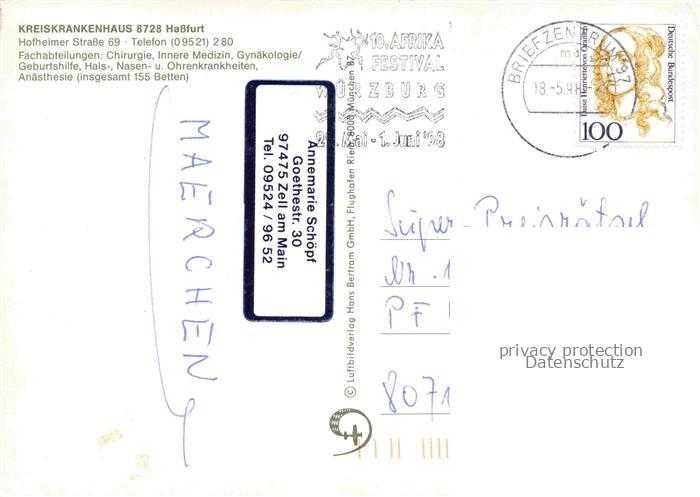 KREISKRANKENHAUS 8728 Haßfurt
Hofheimer Straße 69 · Telefon (0 95 21) 2 80
Fachabteilungen: Chirurgie, Innere Medizin, Gynäkologie/
Geburtshilfe, Hals-, Nasen- u. Ohrenkrankheiten,
Anästhesie (insgesamt 155 Betten)
10. AFRIKA
FESTIVAL
WÜRZBURG
Mai - 1. Juni '98
BRIEFZENTRUM 97
18.-5.98
Deutsche Bundespost
Luise Henriette von Oranien
100
MAERCHEN
Annemarie Schöpf
Goethestr. 30
97475 Zell am Main
Tel. 09524 / 96 52
© Luftbildverlag Hans Bertram GmbH, Flughafen Riem, 8000 München 87
Super-Preisrätsel
Nr. 1
PF
8071
privacy protection
Datenschutz